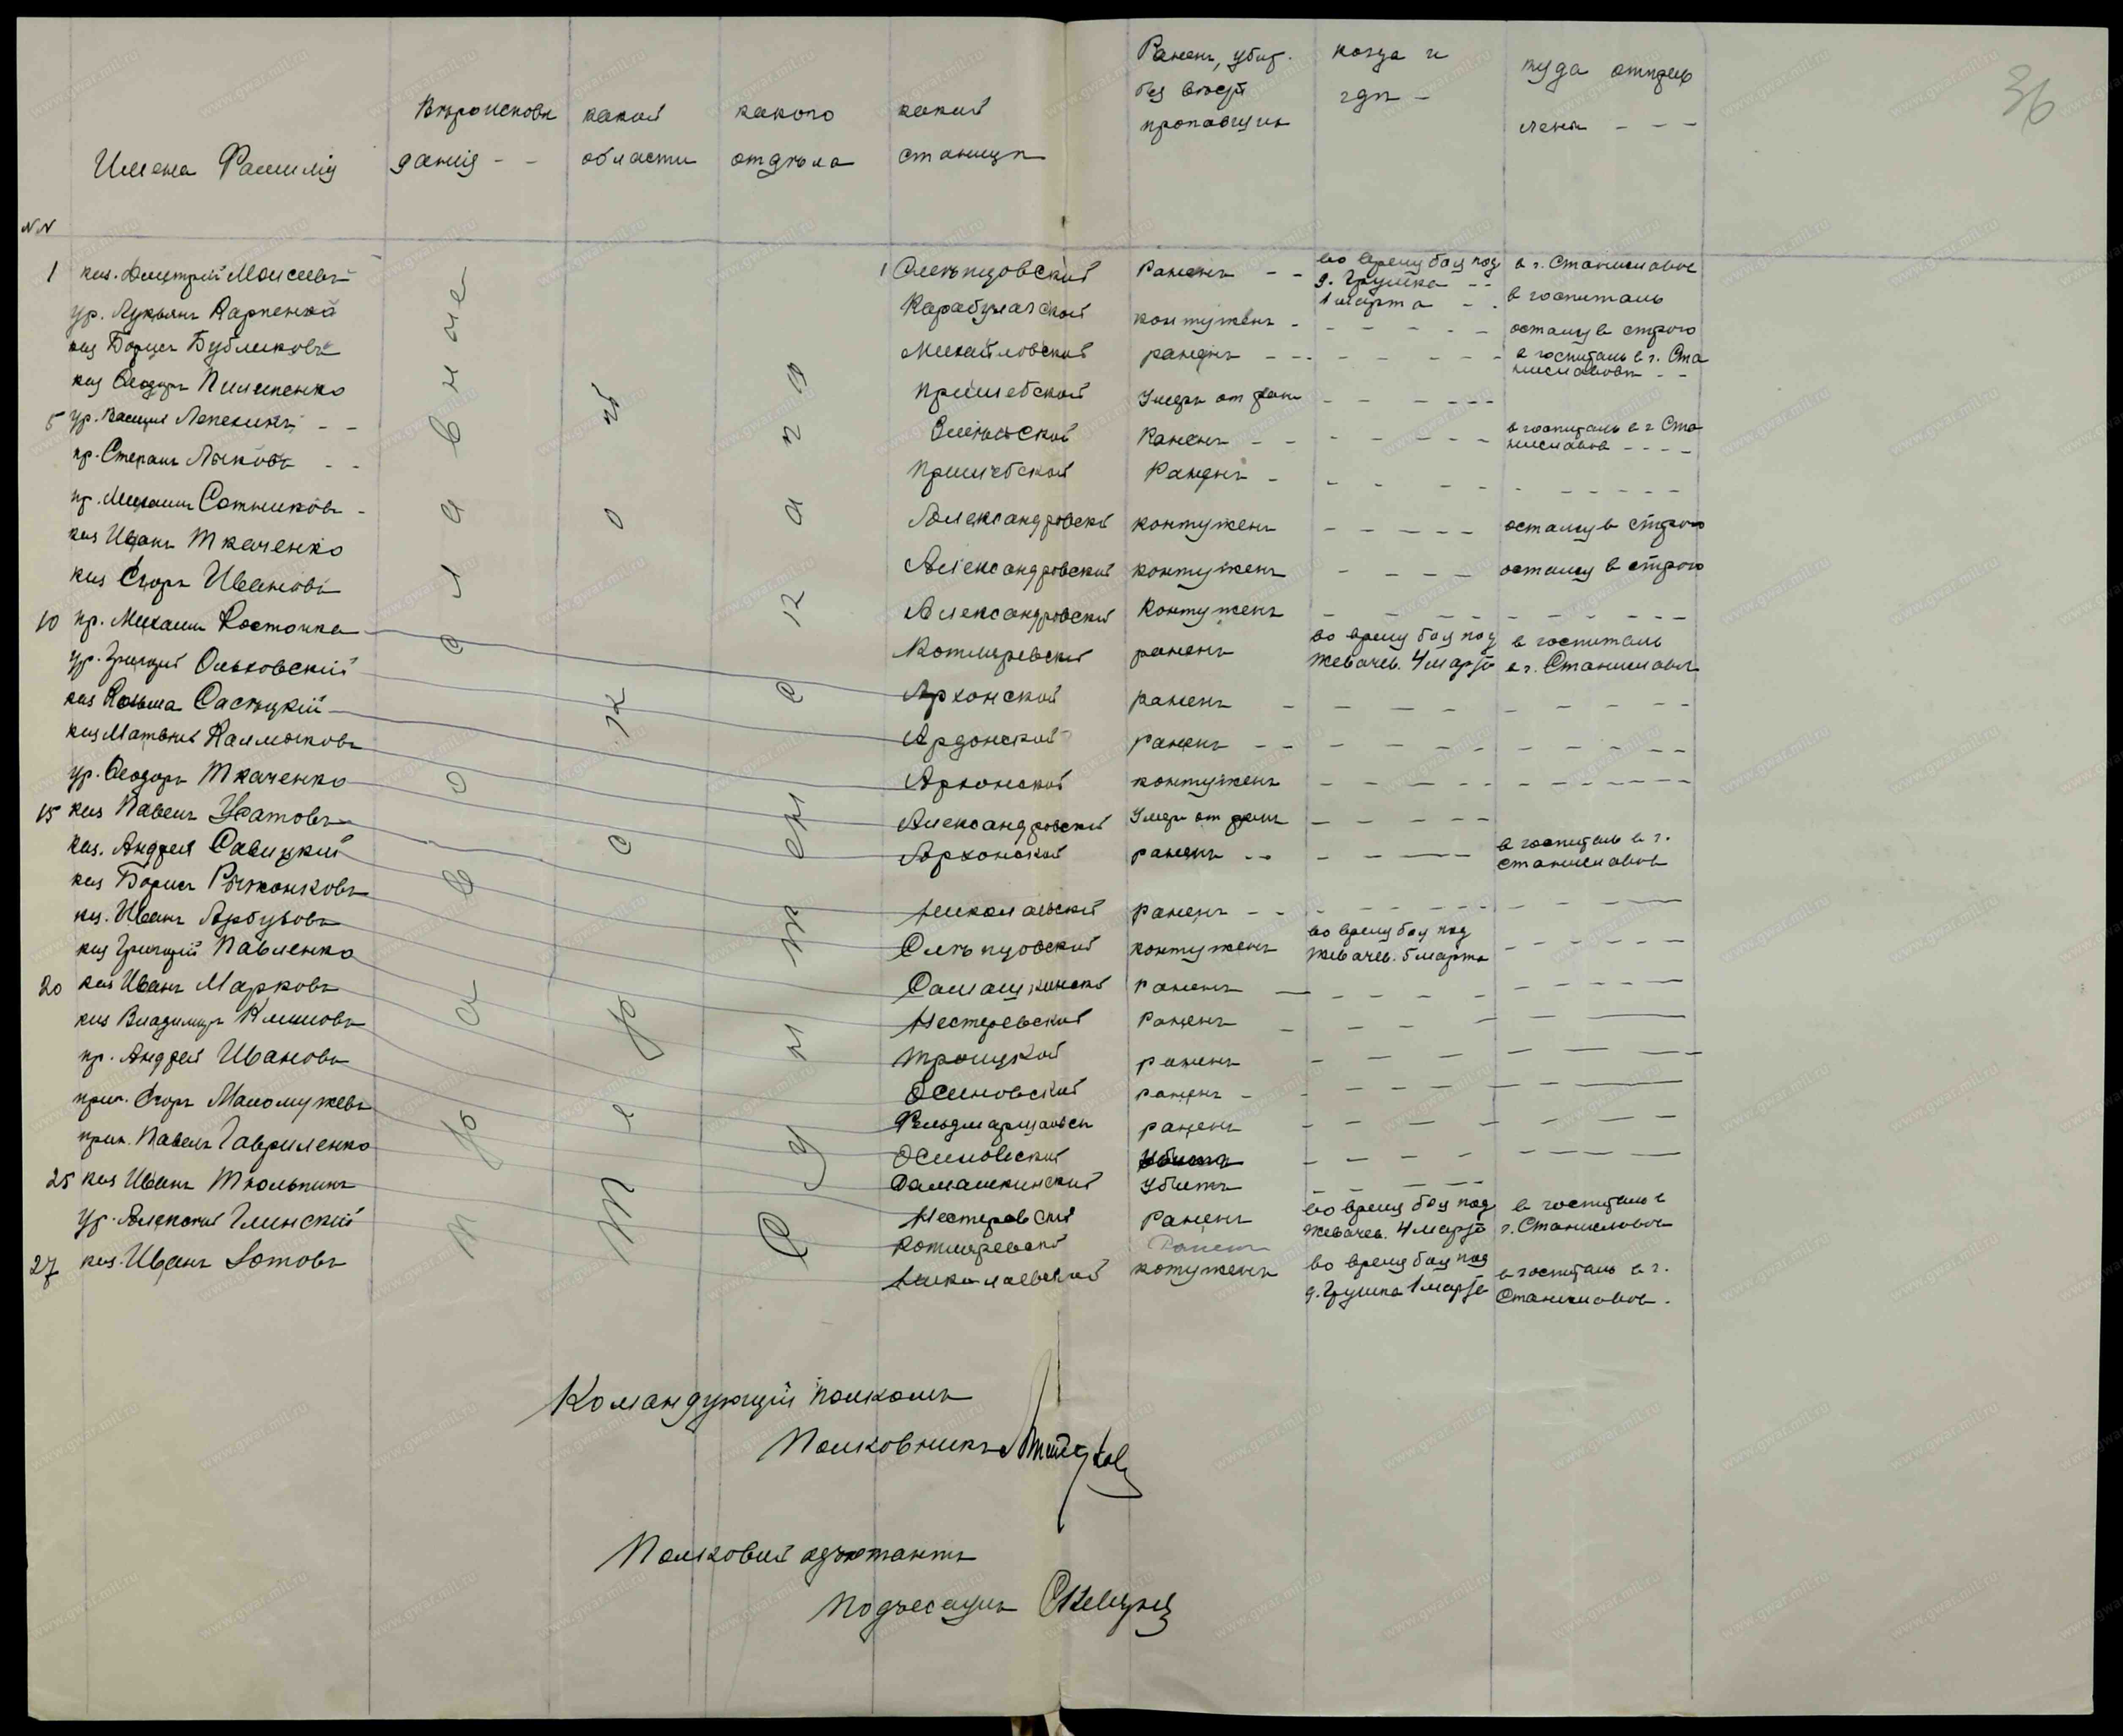 36
Имена Фамилія
Вѣроисповѣданія - -
какой области
какого отдѣла
какой станицы
Раненъ, убит. без вѣсти пропавшихъ
когда и гдѣ -
куда отправлены - - -
NN
1 каз. Дмитрій Моисеевъ 1 Слѣпцовской Раненъ - - во время боя под д. Грушка - - 1 марта - в г. Станиславов в госпиталь
ур. Лукьянъ Карпенко Карабулакской контуженъ - - - - - - остался в строю
каз Борисъ Бубликовъ Михайловской раненъ - - - - - - - в госпиталь в г. Станиславовъ - -
каз Ѳеодоръ Пилипенко Пришибской Умеръ от ран - - - - -
5 ур. Василій Лепехинъ - - Змейской Раненъ - - - - - - - в госпиталь в г Станиславов - - - -
пр. Степанъ Лыковъ - - Пришибской Раненъ - - - - - - - - - -
пр. Михаилъ Сотниковъ - Александровской контуженъ - - - - - остался в строю
каз Иванъ Ткаченко Александровской контуженъ - - - - остался в строю
каз Егоръ Ивановъ Александровской Контуженъ - - - - - - - - -
10 пр. Михаилъ Косточка Котляревской раненъ во время боя под Жевачев. 4 марта в госпиталь в г. Станиславов
ур. Григорій Ольховскій Архонской раненъ - - - - - - - - -
каз Козьма Састуцкій Ардонской раненъ - - - - - - - - -
каз Матвѣй Калмыковъ Архонской контуженъ - - - - - - - - -
ур. Ѳеодоръ Ткаченко Александровской Умеръ от ранъ - - - - -
15 каз Павелъ Уватовъ Архонской раненъ - - - - - в госпиталь в г. Станиславов
каз. Андрей Савицкій Николаевской раненъ - - - - - - - -
каз Борисъ Рыжонковъ Слѣпцовской контуженъ во время боя под Жевачев. 5 марта - - - - -
каз. Иванъ Арбузовъ Самашкинской раненъ - - - - - - - - -
каз Григорій Павленко Нестеревской Раненъ - - - - - -
20 каз Иванъ Марковъ Троицкой раненъ - - - - - - - -
каз Владиміръ Климовъ Осиновской раненъ - - - - - - -
пр. Андрей Ивановъ Фельдмаршальск раненъ - - - - - - -
прик. Егоръ Маломужевъ Осиновской Убитъ - - - - - - - -
прик. Павелъ Гавриленко Самашкинской Убитъ - - - - -
25 каз Иванъ Тюльпинъ Нестеровской Раненъ во время боя под Жевачев. 4 марта в госпиталь в г. Станиславов
ур. Алексѣй Глинскій Котляревской Раненъ
27 каз. Иванъ Зотовъ Николаевской котуженъ во время боя под д. Грушка 1 марта в госпиталь в г. Станиславов.
Православное
Терской
Сунженскаго
Командующій полкомъ
Полковникъ
Полковой адъютантъ
Подъесаулъ